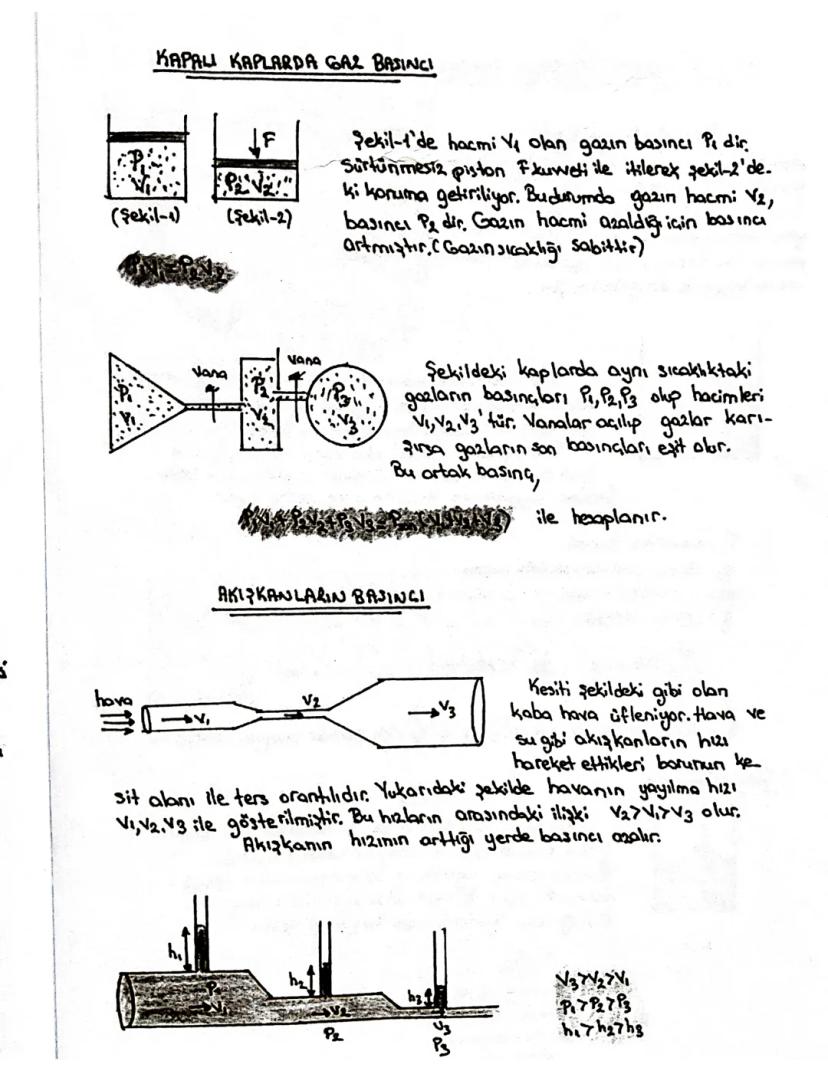 KAPALI KAPLARDA GAZ BASINCI
P1
V1
(Şekil-1)
F
P2 V2
(Şekil-2)
Şekil-1'de hacmi V1 olan gazın basıncı P1 dir.
Sürtünmesiz piston F kuvveti ile itilerek şekil-2'de-
ki konuma getiriliyor. Bu durumda gazın hacmi V2,
basıncı P2 dir. Gazın hacmi azaldığı için basıncı
artmıştır. (Gazın sıcaklığı sabittir)
P1V1=P2V2
P1
V1
Vana
P2
V2
Vana
P3
V3
Şekildeki kaplarda aynı sıcaklıktaki
gazların basınçları P1,P2,P3 olup hacimleri
V1,V2,V3'tür. Vanalar açılıp gazlar karı-
şırsa gazların son basınçları eşit olur.
Bu ortak basınç,
ile hesaplanır.
AKIŞKANLARIN BASINCI
hava
V1
V2
V3
Kesiti şekildeki gibi olan
kaba hava üfleniyor. Hava ve
su gibi akışkanların hızı
hareket ettikleri borunun ke-
sit alanı ile ters orantılıdır. Yukarıdaki şekilde havanın yayılma hızı
V1,V2,V3 ile gösterilmiştir. Bu hızların arasındaki ilişki V2>V1>V3 olur.
Akışkanın hızının arttığı yerde basıncı azalır.
h1
P1
V1
h2
V2
P2
V3
P3
V3>V2>V1
P1>P2>P3
h1>h2>h3